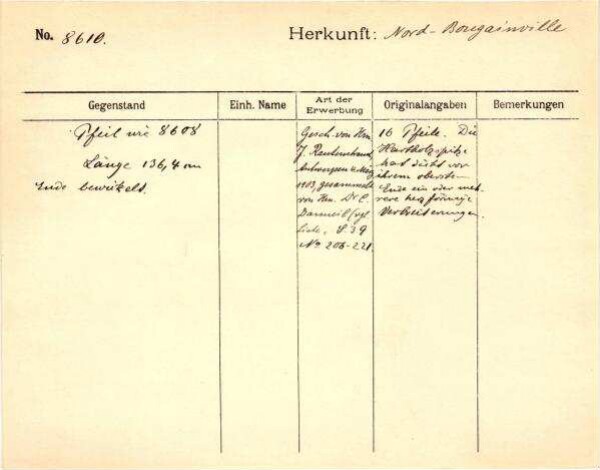 No. 8610.
Herkunft: Nord-Bougainville
Gegenstand
Einh. Name
Art der Erwerbung
Originalangaben
Bemerkungen
Pfeil wie 8608
Länge 136,4 cm
Ende bewickelt.
Gesch. von Hrn
J. Rautenstrauch
Antwerpen
gesammelt
von Hrn. Dr C.
Liste, S. 39
No 206-221.
16 Pfeile. Die
Hartholzspitze
hat dicht vor
ihrem obersten
Ende ein oder meh-
rere
Verbreiterungen.